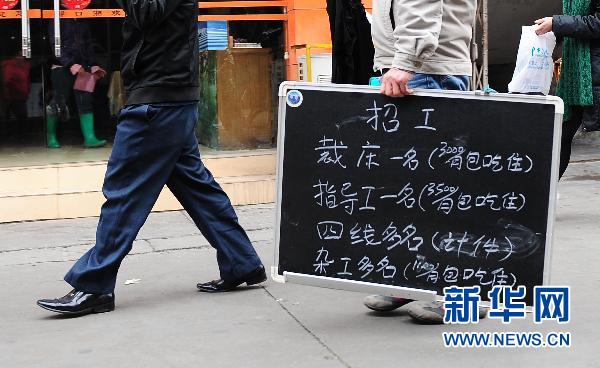 招工
裁床一名(3000有包吃住)
指导工一名(3500有包吃住)
四线多名(计件)
杂工多名(1800有包吃住)
新华网
WWW.NEWS.CN